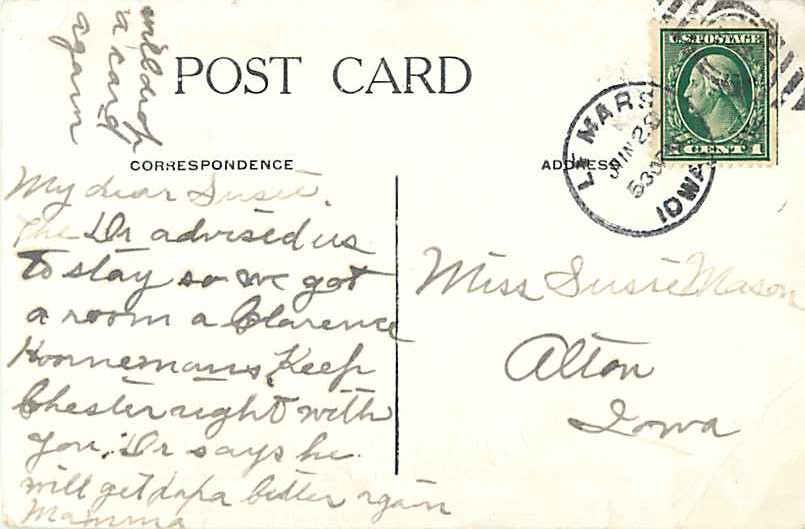 will drop
a card
again
POST CARD
U.S. POSTAGE
CENT 1
LE MARS
JAN 28
530P
IOWA
CORRESPONDENCE
ADDRESS
My dear Susie.
The Dr advised us
to stay so we got
a room a Clarence
Hoornemans. Keep
Chester right with
you. Dr says he
will get papa better again
Mamma
Miss Susie Mason
Alton
Iowa